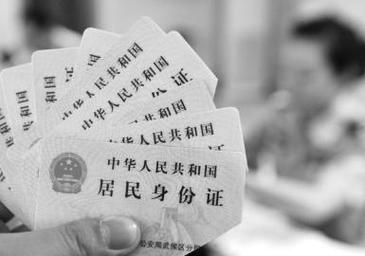 中华人民共和国
中华人民共和国
中华人民共和国
中华人民共和国
份证
中华人民共和国
居民身份证
公安局武侯区分局